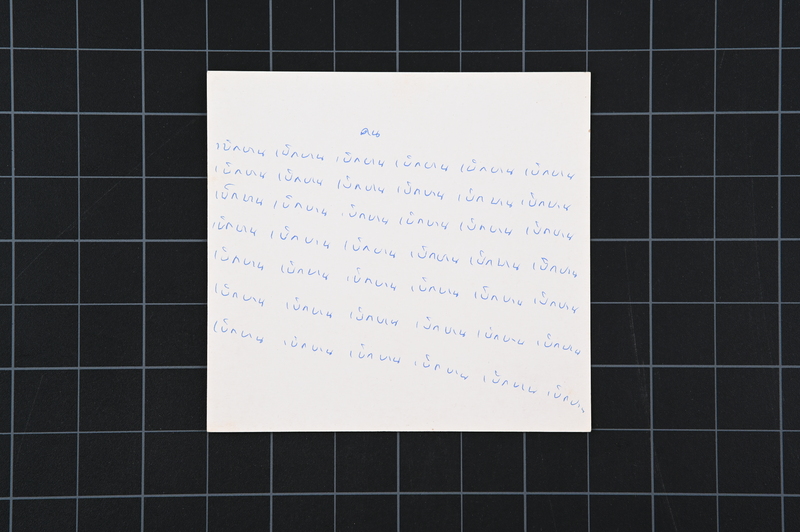 คน
เบิกบาน เบิกบาน เบิกบาน เบิกบาน เบิกบาน เบิกบาน
เบิกบาน เบิกบาน เบิกบาน เบิกบาน เบิกบาน เบิกบาน
เบิกบาน เบิกบาน เบิกบาน เบิกบาน เบิกบาน เบิกบาน
เบิกบาน เบิกบาน เบิกบาน เบิกบาน เบิกบาน เบิกบาน
เบิกบาน เบิกบาน เบิกบาน เบิกบาน เบิกบาน เบิกบาน
เบิกบาน เบิกบาน เบิกบาน เบิกบาน เบิกบาน เบิกบาน
เบิกบาน เบิกบาน เบิกบาน เบิกบาน เบิกบาน เบิกบาน